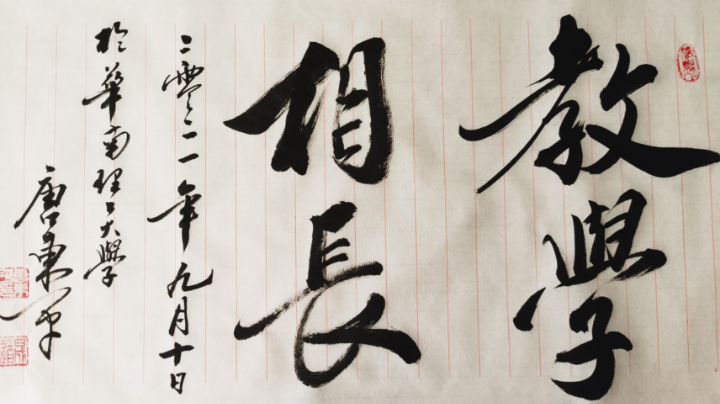 教學
相長
二零二一年九月十日
於華南理工大學
唐東平